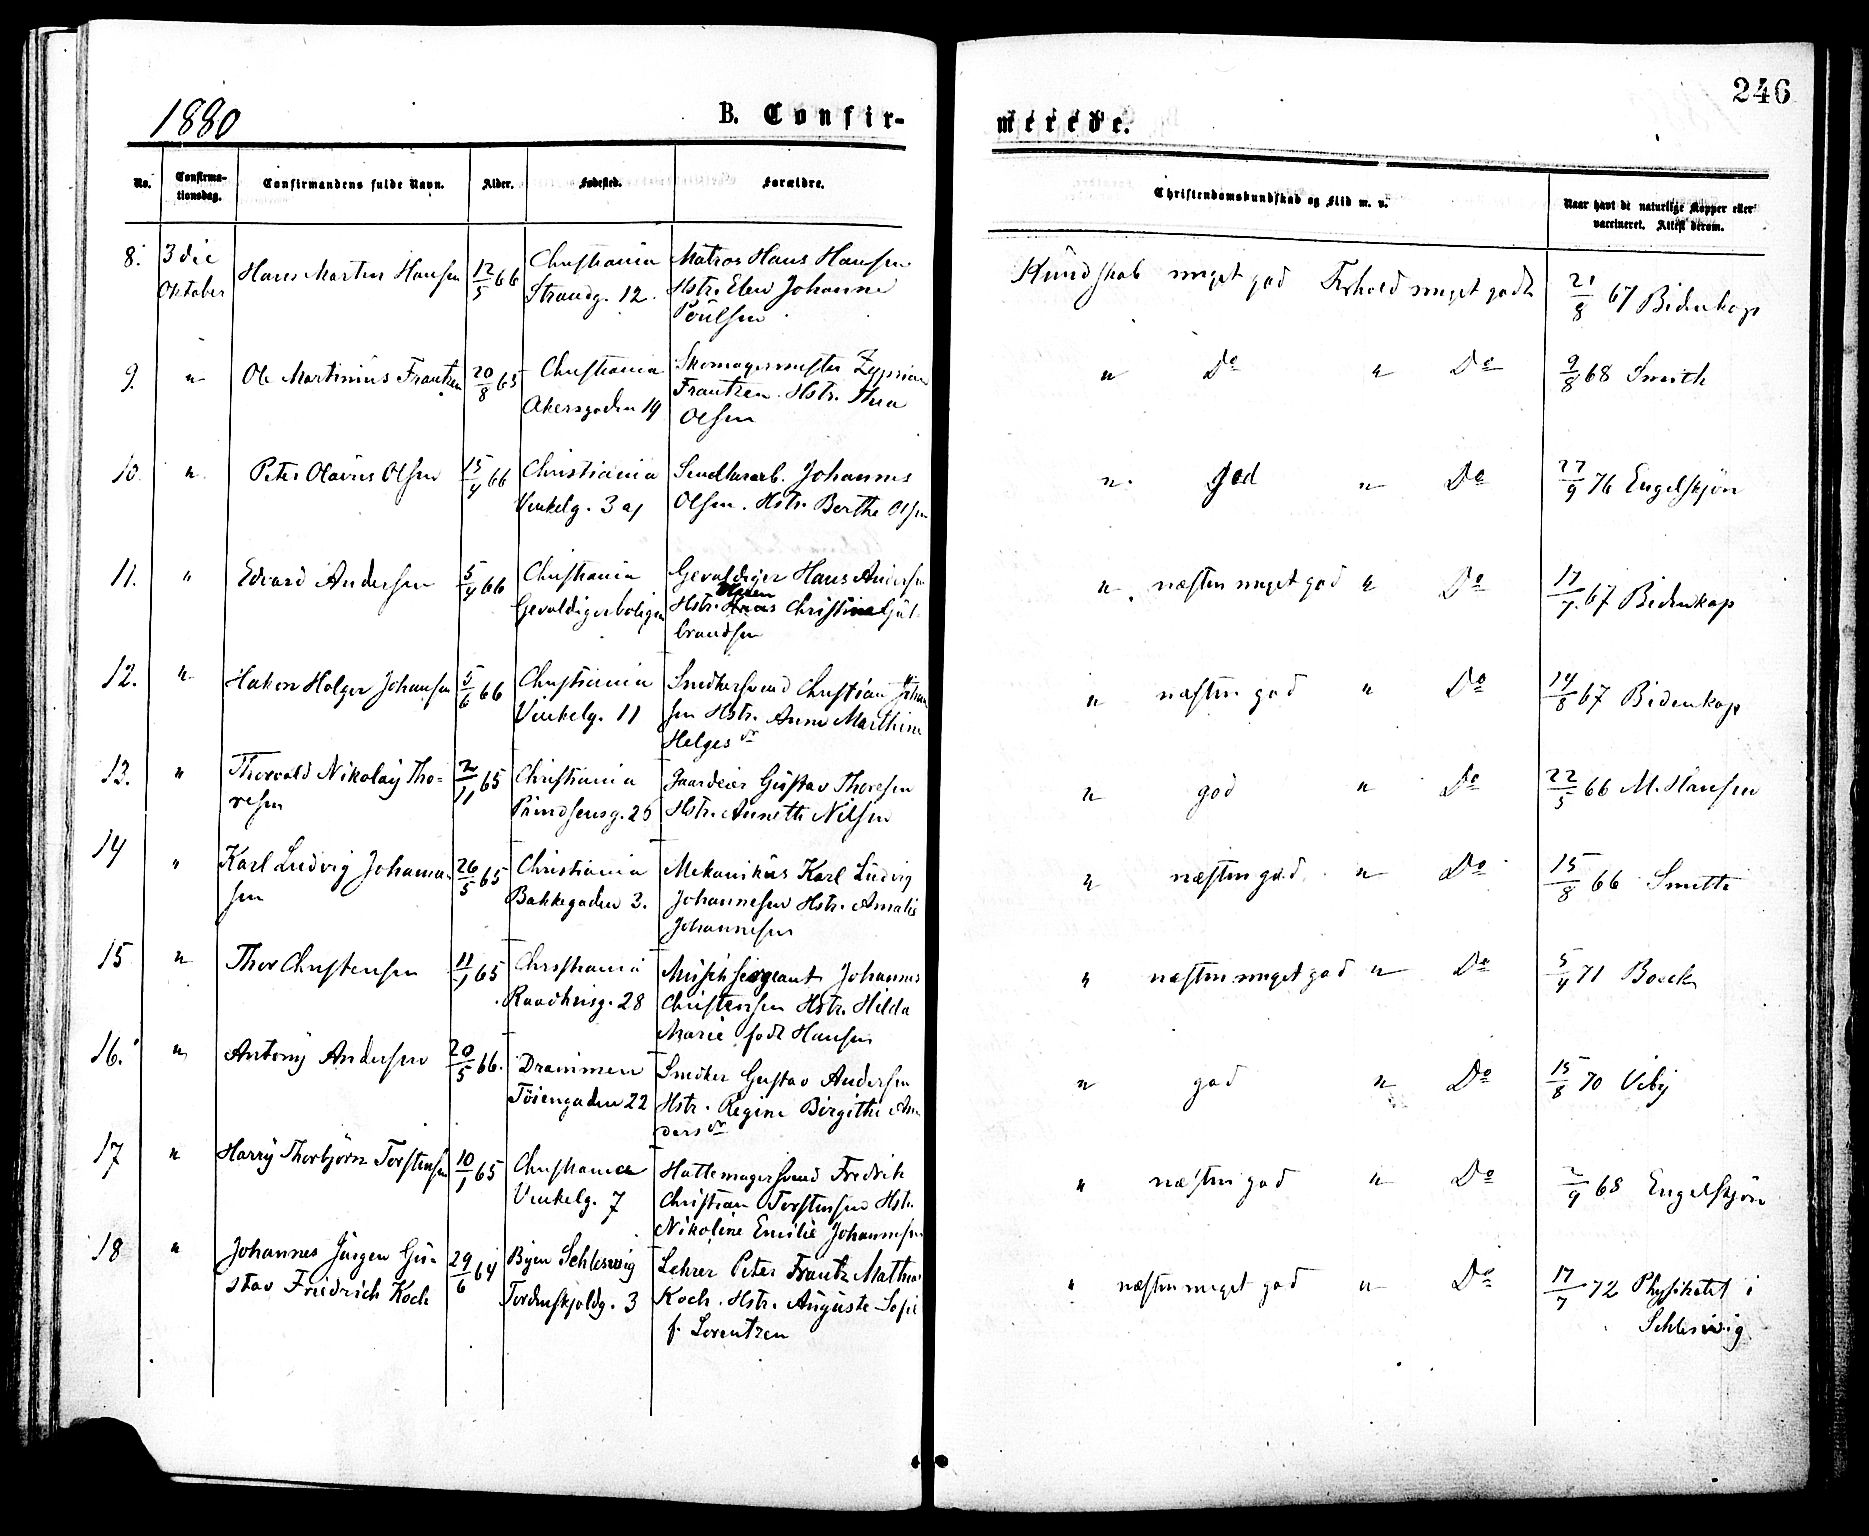 246
1880
B. Confir-
merede.
No.
Confirma-
tionsdag.
Confirmandens fulde Navn.
Alder.
Fødested.
Forældre.
Christendomskundskab og Flid m. v.
Naar havt de naturlige Kopper eller
vaccineret. Attest derom.
8. 3die Hans Martin Hansen 12/5 66 Christiania Matros Hans Hansen Kundskab meget god Forhold meget godt 21/8 67 Bidenkap
Oktober Strandg. 12. Hstr. Elen Johanne
Poulsen
9. " Ole Martinius Frantzen 20/8 65 Christiania Skomagermester Zyprian " Do " Do 9/8 68 Smith
Akersgaden 19 Frantzen. Hstr. Thea
Olsen
10. " Peter Olavus Olsen 15/4 66 Christiania Johannes " god " Do 27/9 76 Engelskjøn
Vinkelg. 3 Olsen. Hstr. Berthe Olsen
11. " Edvard Andersen 5/4 66 Christiania Gevaldiger Hans Andersen " næsten meget god " Do 17/7 67 Bidenkap
Gevaldigerboligen Hstr. Maren Christine Gul-
brandsen
12. " Hakon Holger Johansen 5/6 66 Christiania Smedkersvend Christian Johan " næsten god " Do 14/8 67 Bidenkap
Vinkelg. 11 sen Hstr. Anne Marthine
Helgesdr
13. " Thorvald Nikolay Tho- 2/11 65 Christiania Gaardeier Gustav Thoresen " god " Do 22/5 66 M. Hansen
resen Prindsensg. 25 Hstr. Annette Nilsen
14 " Karl Ludvig Johanne- 26/5 65 Christiania Mekanikus Karl Ludvig " næsten god " Do 15/8 66 Smith
sen Bakkegaden 3. Johannesen Hstr. Amalie
Johannesen
15 " Thor Christensen 11/1 65 Christiania Musiksergeant Johannes " næsten meget god " Do 5/4 71 Boeck
Raadhusg. 28 Christensen Hstr. Hilda
Marie født Hansen
16. " Antony Andersen 20/5 66. Drammen Smedker Gustav Andersen " god " Do 15/8 70 Viby
Töiengaden 22 Hstr. Regine Birgithe An
dersdr
17 " Harry Thorbjørn Torstensen 10/1 65 Christiania Hattemagersvend Fredrik " næsten god " Do 2/9 68 Engelskjøn
Vinkelg. 7 Christian Torstensen Hstr.
Nikoline Emilie Johannesen
18 " Johannes Jürgen Gu- 29/6 64 Byen Schleswig Lehrer Peter Frantz Mathias " næsten meget god " Do 17/7 72 Physikatet i
stav Friedrich Koch Tordenskjoldg. 3 Koch. Hstr. Auguste Sofie Schleswig
f. Lorentzen